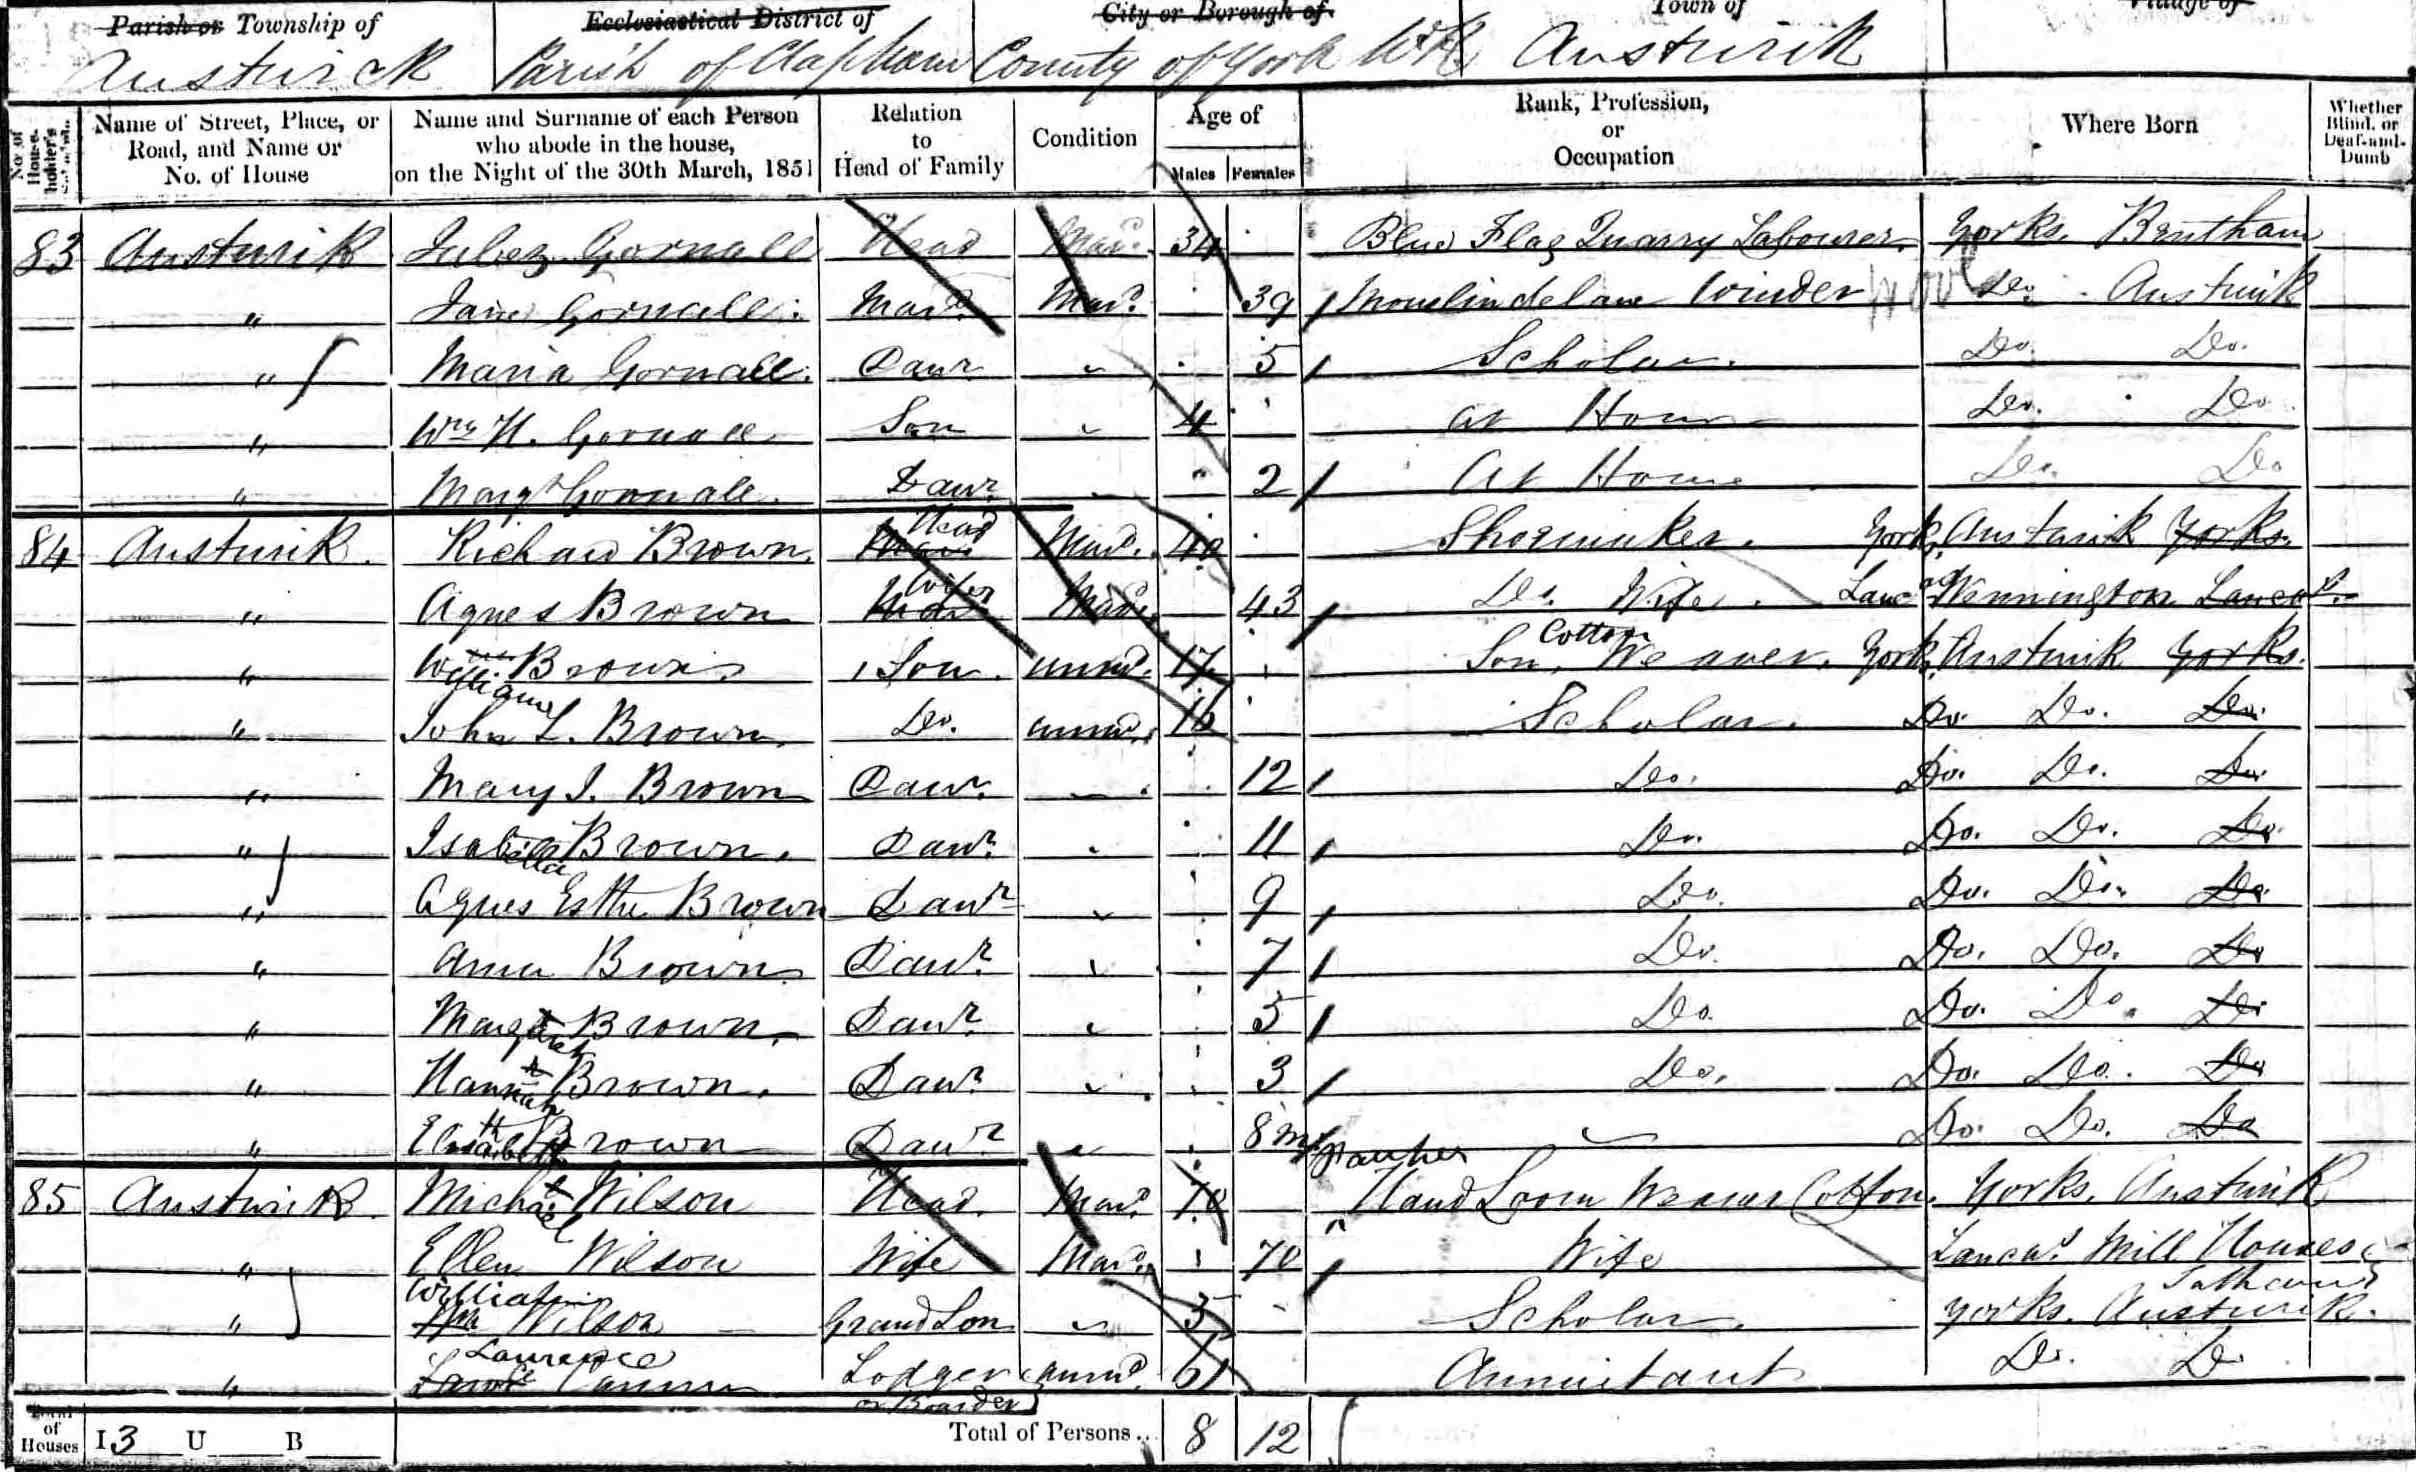 Parish or Township of Ecclesiastical District of City or Borough of Town of Village of
Austwick Parish of Clapham County of York WR Austwick
No. of House-holder's Name of Street, Place, or Road, and Name or No. of House Name and Surname of each Person who abode in the house, on the Night of the 30th March, 1851 Relation to Head of Family Condition Age of Males Females Rank, Profession, or Occupation Where Born Whether Blind, or Deaf-and-Dumb
83 Austwick Jabez Gornall Head Mard. 34 Blue Flag Quarry Labourer Yorks. Bentham
" Jane Gornall Mard. Mard. 39 Mouslindelane Winder Do. Austwick
" Maria Gornall Dawr. 5 Scholar. Do. Do.
" Wm H. Gornall Son 4 At Home Do. Do.
" Margt Gornall. Dawr. 2 At Home Do. Do
84 Austwick. Richard Brown. Head Mard. 40 Shoemaker. York, Austwick Yorks.
" Agnes Brown Wife Mard. 43 Do. Wife. Wennington
" William Brown Son. unmd. 17 Son, Cotton Weaver. York, Austwick Yorks.
" John L. Brown. Do. unmd. 16 Scholar. Do. Do. Do.
" Mary J. Brown Dawr. 12 Do. Do. Do. Do.
" Isabella Brown. Dawr. 11 Do. Do. Do. Do.
" Agnes Esthe Brown Dawr 9 Do. Do. Do. Do.
" Ann Brown. Dawr. 7 Do. Do. Do. Do
" Margaret Brown. Dawr. 5 Do. Do. Do. Do
" Hannah Brown. Dawr. 3 Do. Do. Do. Do
" Elisabeth Brown Dawr 8m Do. Do. Do
Pauper
85 Austwick. Michael Wilson Head. Mard. 70 Hand Loom Weaver Cotton. Yorks. Austwick
" Ellen Wilson Wife Mard. 70 Wife Lancas. Mill Houses
Tatham
" William Wilson Grand Son 5 Scholar. Yorks. Austwick.
" Laurence Lodger or Boarder unmd. 61 Annuitant Do. Do
Total of Houses I 3 U B Total of Persons.. 8 12